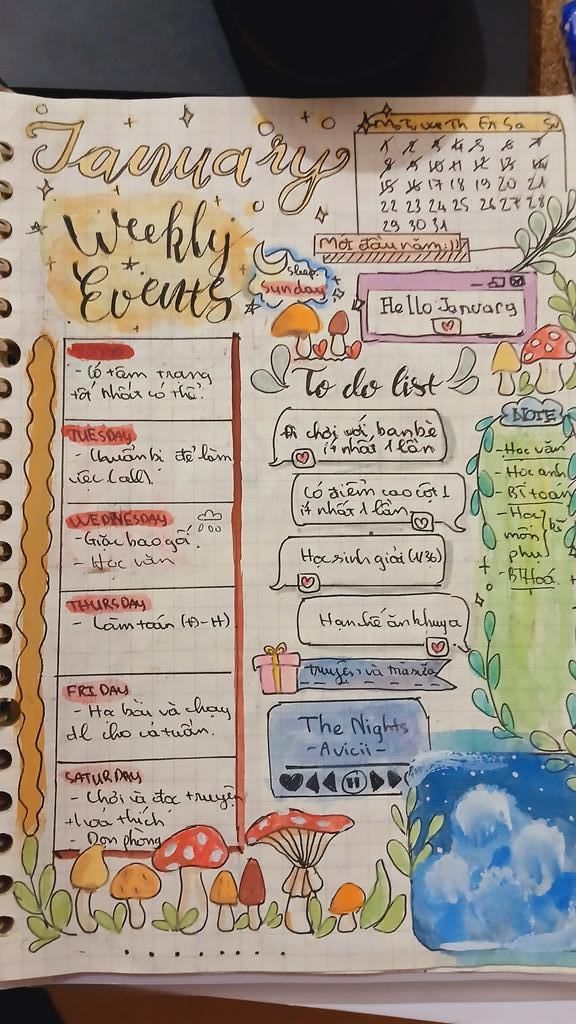 January
Weekly
Events
Mo Tu We Th Fr Sa Su
1 2 3 4 5 6 7
8 9 10 11 12 13 14
15 16 17 18 19 20 21
22 23 24 25 26 27 28
29 30 31
Một đầu năm :))
sleep
Sunday
Hello January
- Có tâm trạng
tốt nhất có thể.
TUESDAY
- Chuẩn bị để làm
việc (all).
WEDNESDAY
- Giặc bao gối.
- Học văn
THURSDAY
- Làm toán (Đ-H)
FRIDAY
- Họ bài và chạy
dl cho cả tuần.
SATURDAY
- Chơi và đọc truyện
+ lựa thích
- Dọn phòng
To do list
Đi chơi với bạn bè
ít nhất 1 lần
Có điểm cao cột 1
ít nhất 1 lần
Học sinh giỏi (1/36)
Hạn chế ăn khuya
truyện và trà sữa
The Nights
- Avicii -
NOTE
- Học văn
- Học anh
- BT toán
- Học kĩ
môn
phụ
- BT Hoá.